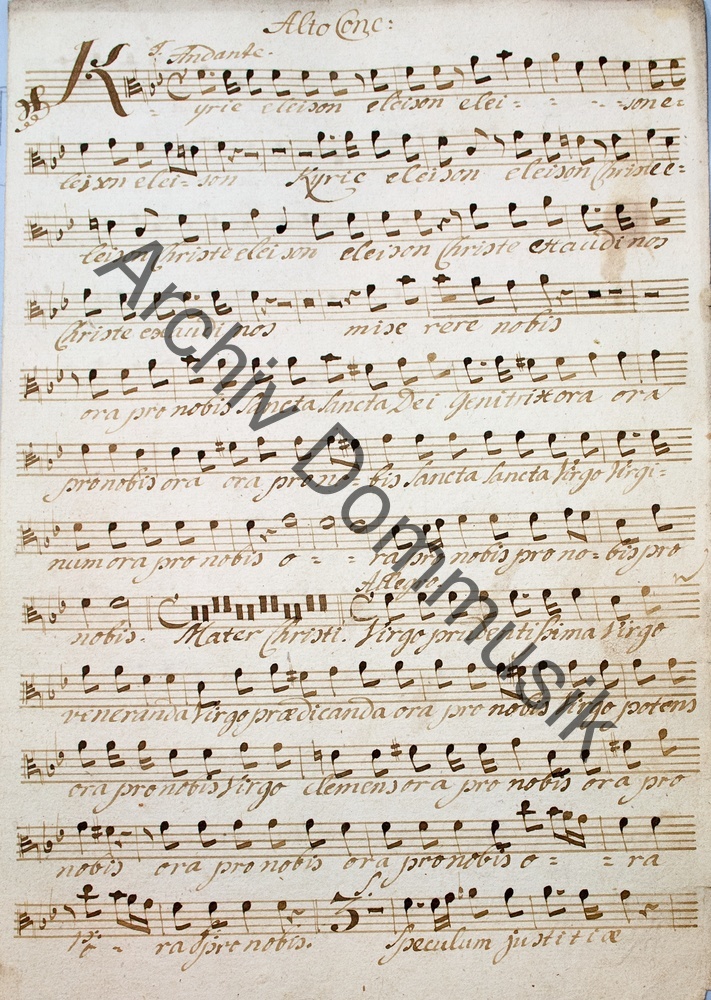 Alto Conc:
Andante.
Kyrie eleison eleison elei = = = = son e=
leison elei= son Kyrie eleison eleison Christe e=
leison Christe eleison eleison Christe exaudi nos
Christe exaudi nos mise rere nobis
ora pro nobis Sancta Sancta Dei Genitrix ora ora
pro nobis ora ora pro no= bis Sancta Sancta Virgo Virgi=
num ora pro nobis o= = = ra pro nobis pro no= bis pro
Allegro
nobis. Mater Christi. Virgo prudentissima Virgo
veneranda Virgo prædicanda ora pro nobis Virgo potens
ora pro nobis Virgo clemens ora pro nobis ora pro
nobis ora pro nobis ora pro nobis o= = ra
o= ra pro nobis. 3 S. Speculum justitiæ
Archiv Dommusik